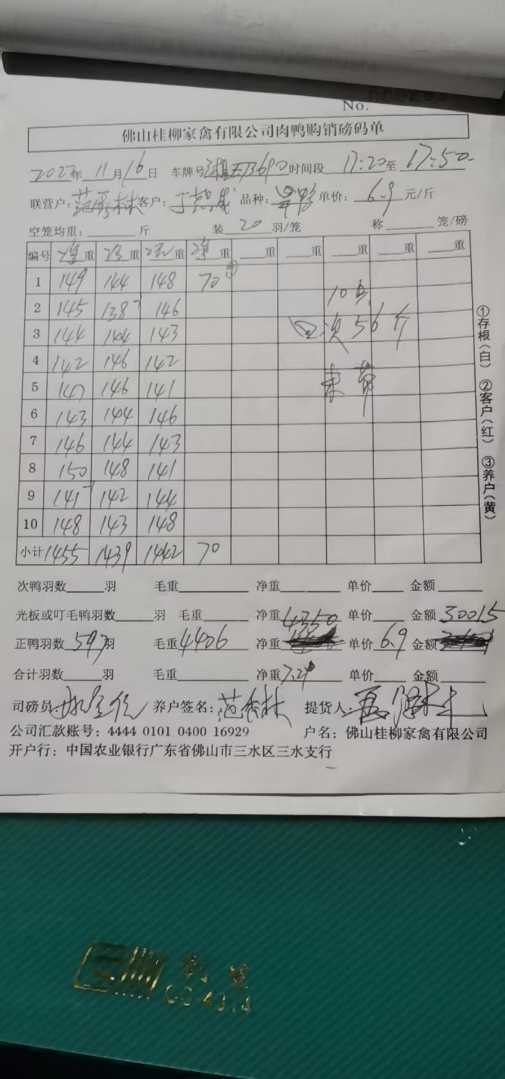 No.
佛山桂柳家禽有限公司肉鸭购销磅码单
2022年 11月16日 车牌号 时间段 17:20至17:50
联营户: 客户: 品种: 单价: 6.9 元/斤
空笼均重: 斤 装 20 羽/笼 称 笼/磅
编号 净重 净重 净重 净重 重 重 重 重 重
1 149 144 148 70
2 145 138 146
3 144 144 143
4 142 146 142
5 147 146 141
6 143 144 146
7 146 144 143
8 150 148 141
9 141 142 144
10 148 143 148
小计 1455 1439 1442 70
10只
次56斤
①存根(白) ②客户(红) ③养户(黄)
次鸭羽数 羽 毛重 净重 单价 金额
光板或叮毛鸭羽数 羽 毛重 净重 4350 单价 金额 30015
正鸭羽数 597 羽 毛重 4406 净重 单价 6.9 金额
合计羽数 羽 毛重 净重 7.29 单价 金额
司磅员 养户签名: 提货人
公司汇款账号: 4444 0101 0400 16929 户名: 佛山桂柳家禽有限公司
开户行: 中国农业银行广东省佛山市三水区三水支行